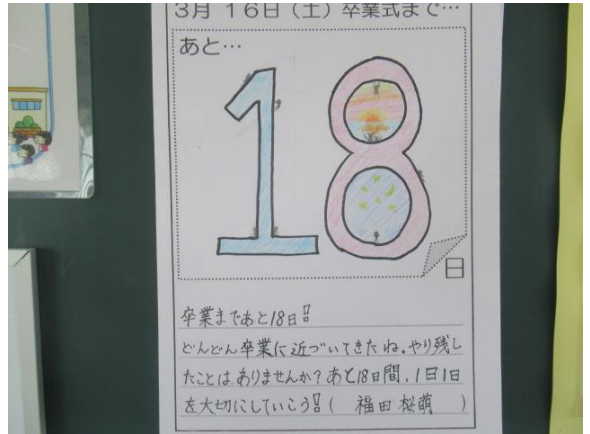 3月 16日(土)卒業式まで…
あと…
18
日
卒業まであと18日!!
どんどん卒業に近づいてきたね。やり残し
たことはありませんか?あと18日間、1日1日
を大切にしていこう!!( 福田 桜萌 )